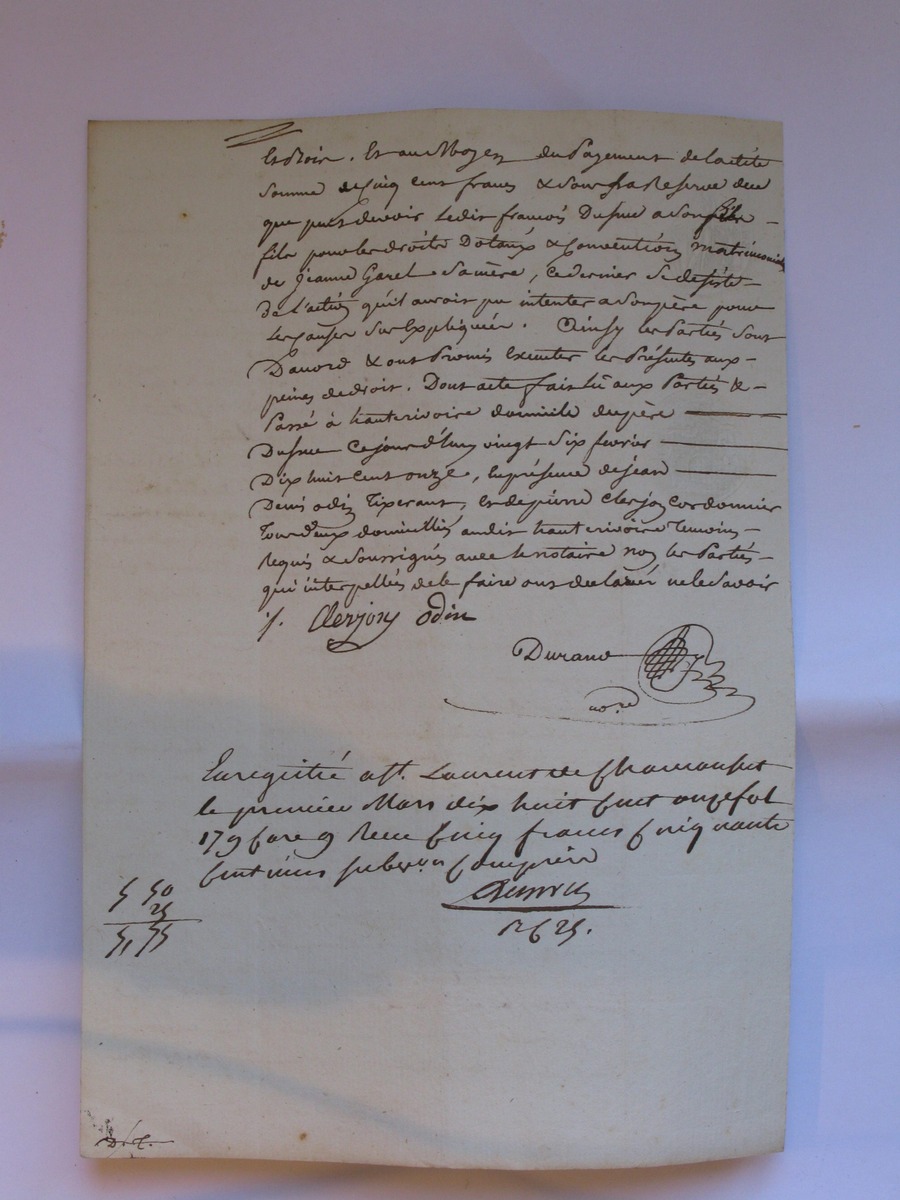 et Noir. Et au Moyen du Payement de ladite
Somme de cinq cent francs & Sous la Reserve de ce
que peut devoir Ledit francois Dusuc a Son
fils pour les droits Dotaux & Conventions matrimoniales
de Jeanne Garel Sa mère, ce dernier Se desiste
De L'action qu'il auroit pu intenter a Son père pour
Les causes Sus Expliquées. Ainsy les Parties Sont
D'accord & ont Promis Executer les Présentes aux
peines de droit. Dont acte fait lû aux Parties &
Passé à hauterivoire domicile du père
Dusuc ce jourd'huy vingt Six fevrier
Dix huit cent onze, En présence de jean
Denis odin Tixerant, et de pierre Clerjon Cordonnier
Tous deux domiciliés audit hauterivoire temoins
Requis & Soussignés avec le notaire non les Parties
qui interpellés de le faire ont déclaré ne le Savoir
/. Clerjon odin
Durand
no.re
Enregistré à St. Laurent de Chamousset
le premier Mars dix huit cent onze fol
179 Case 9 Recu cinq francs cinquante
centimes subvon Comprise
5 50
25
5, 75